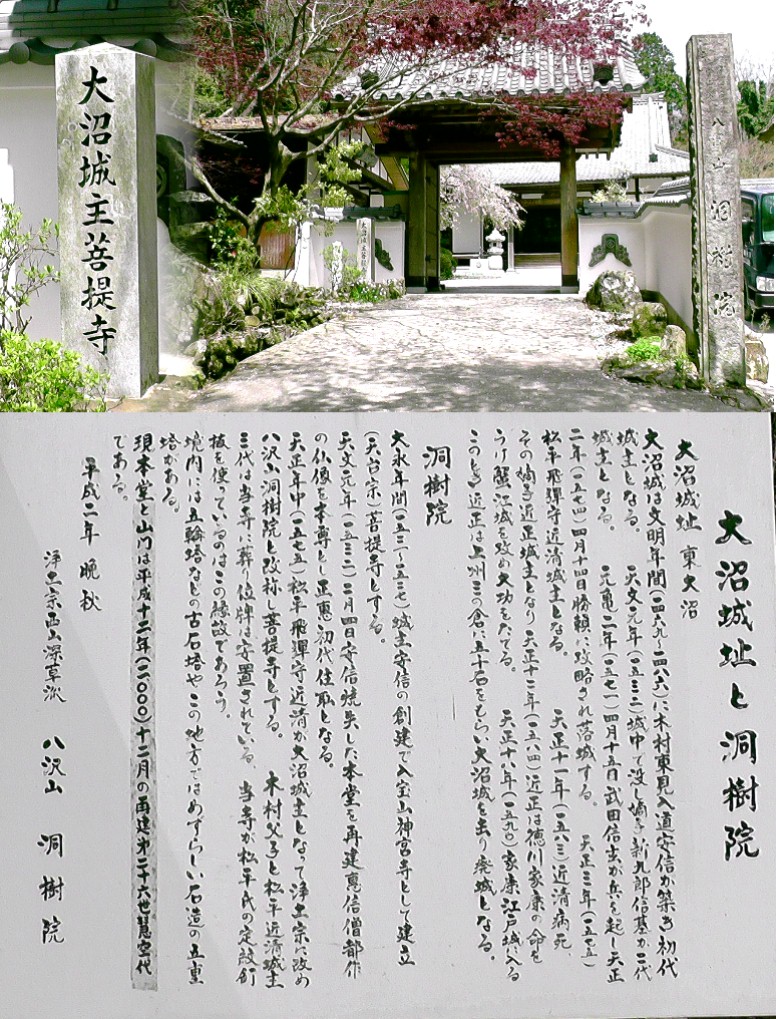 大沼城主菩提寺
八沢山 洞樹院
大沼城址と洞樹院
大沼城址 東大沼
大沼城は文明年間(一四六九〜一四八六)に木村東見入道安信が築き初代
城主となる。 天文元年(一五三二)城中で没し嫡子新九郎信基が二代
城主となる。 元亀二年(一五七一)四月十五日武田信玄が兵を起し天正
二年(一五七四)四月十四日勝頼に攻略され落城する。 天正三年(一五七五)
松平飛騨守近清城主となる。 天正十一年(一五八三)近清病死、
その嫡子近正城主となり天正十二年(一五八四)近正は徳川家康の命を
うけ蟹江城を攻め大功をたてる。 天正十八年(一五九〇)家康江戸城に入る
このとき近正は上州三の倉に五十石をもらい大沼城を出り廃城となる。
洞樹院
大永年間(一五二一〜一五二七)城主安信の創建で入宝山神宮寺として建立
(天台宗)菩提寺とする。
天文元年(一五三二)二月四日安信焼失した本堂を再建恵信僧都作
の仏像を本尊とし正恵初代住職となる。
天正年中(一五七五)松平飛騨守近清が大沼城主となって浄土宗に改め
八沢山洞樹院と改称し菩提寺とする。 木村父子と松平近清城主
三代は当寺に葬り位牌は安置されている。 当寺が松平氏の定紋釘
抜を使っているのはこの縁故であろう。
境内には五輪塔などの古石塔やこの地方ではめずらしい石造の五重
塔がある。
現本堂と山門は平成十二年(二〇〇〇)十二月の再建第二十六世慧空代
である。
平成二年 晩秋
浄土宗西山深草派 八沢山 洞樹院